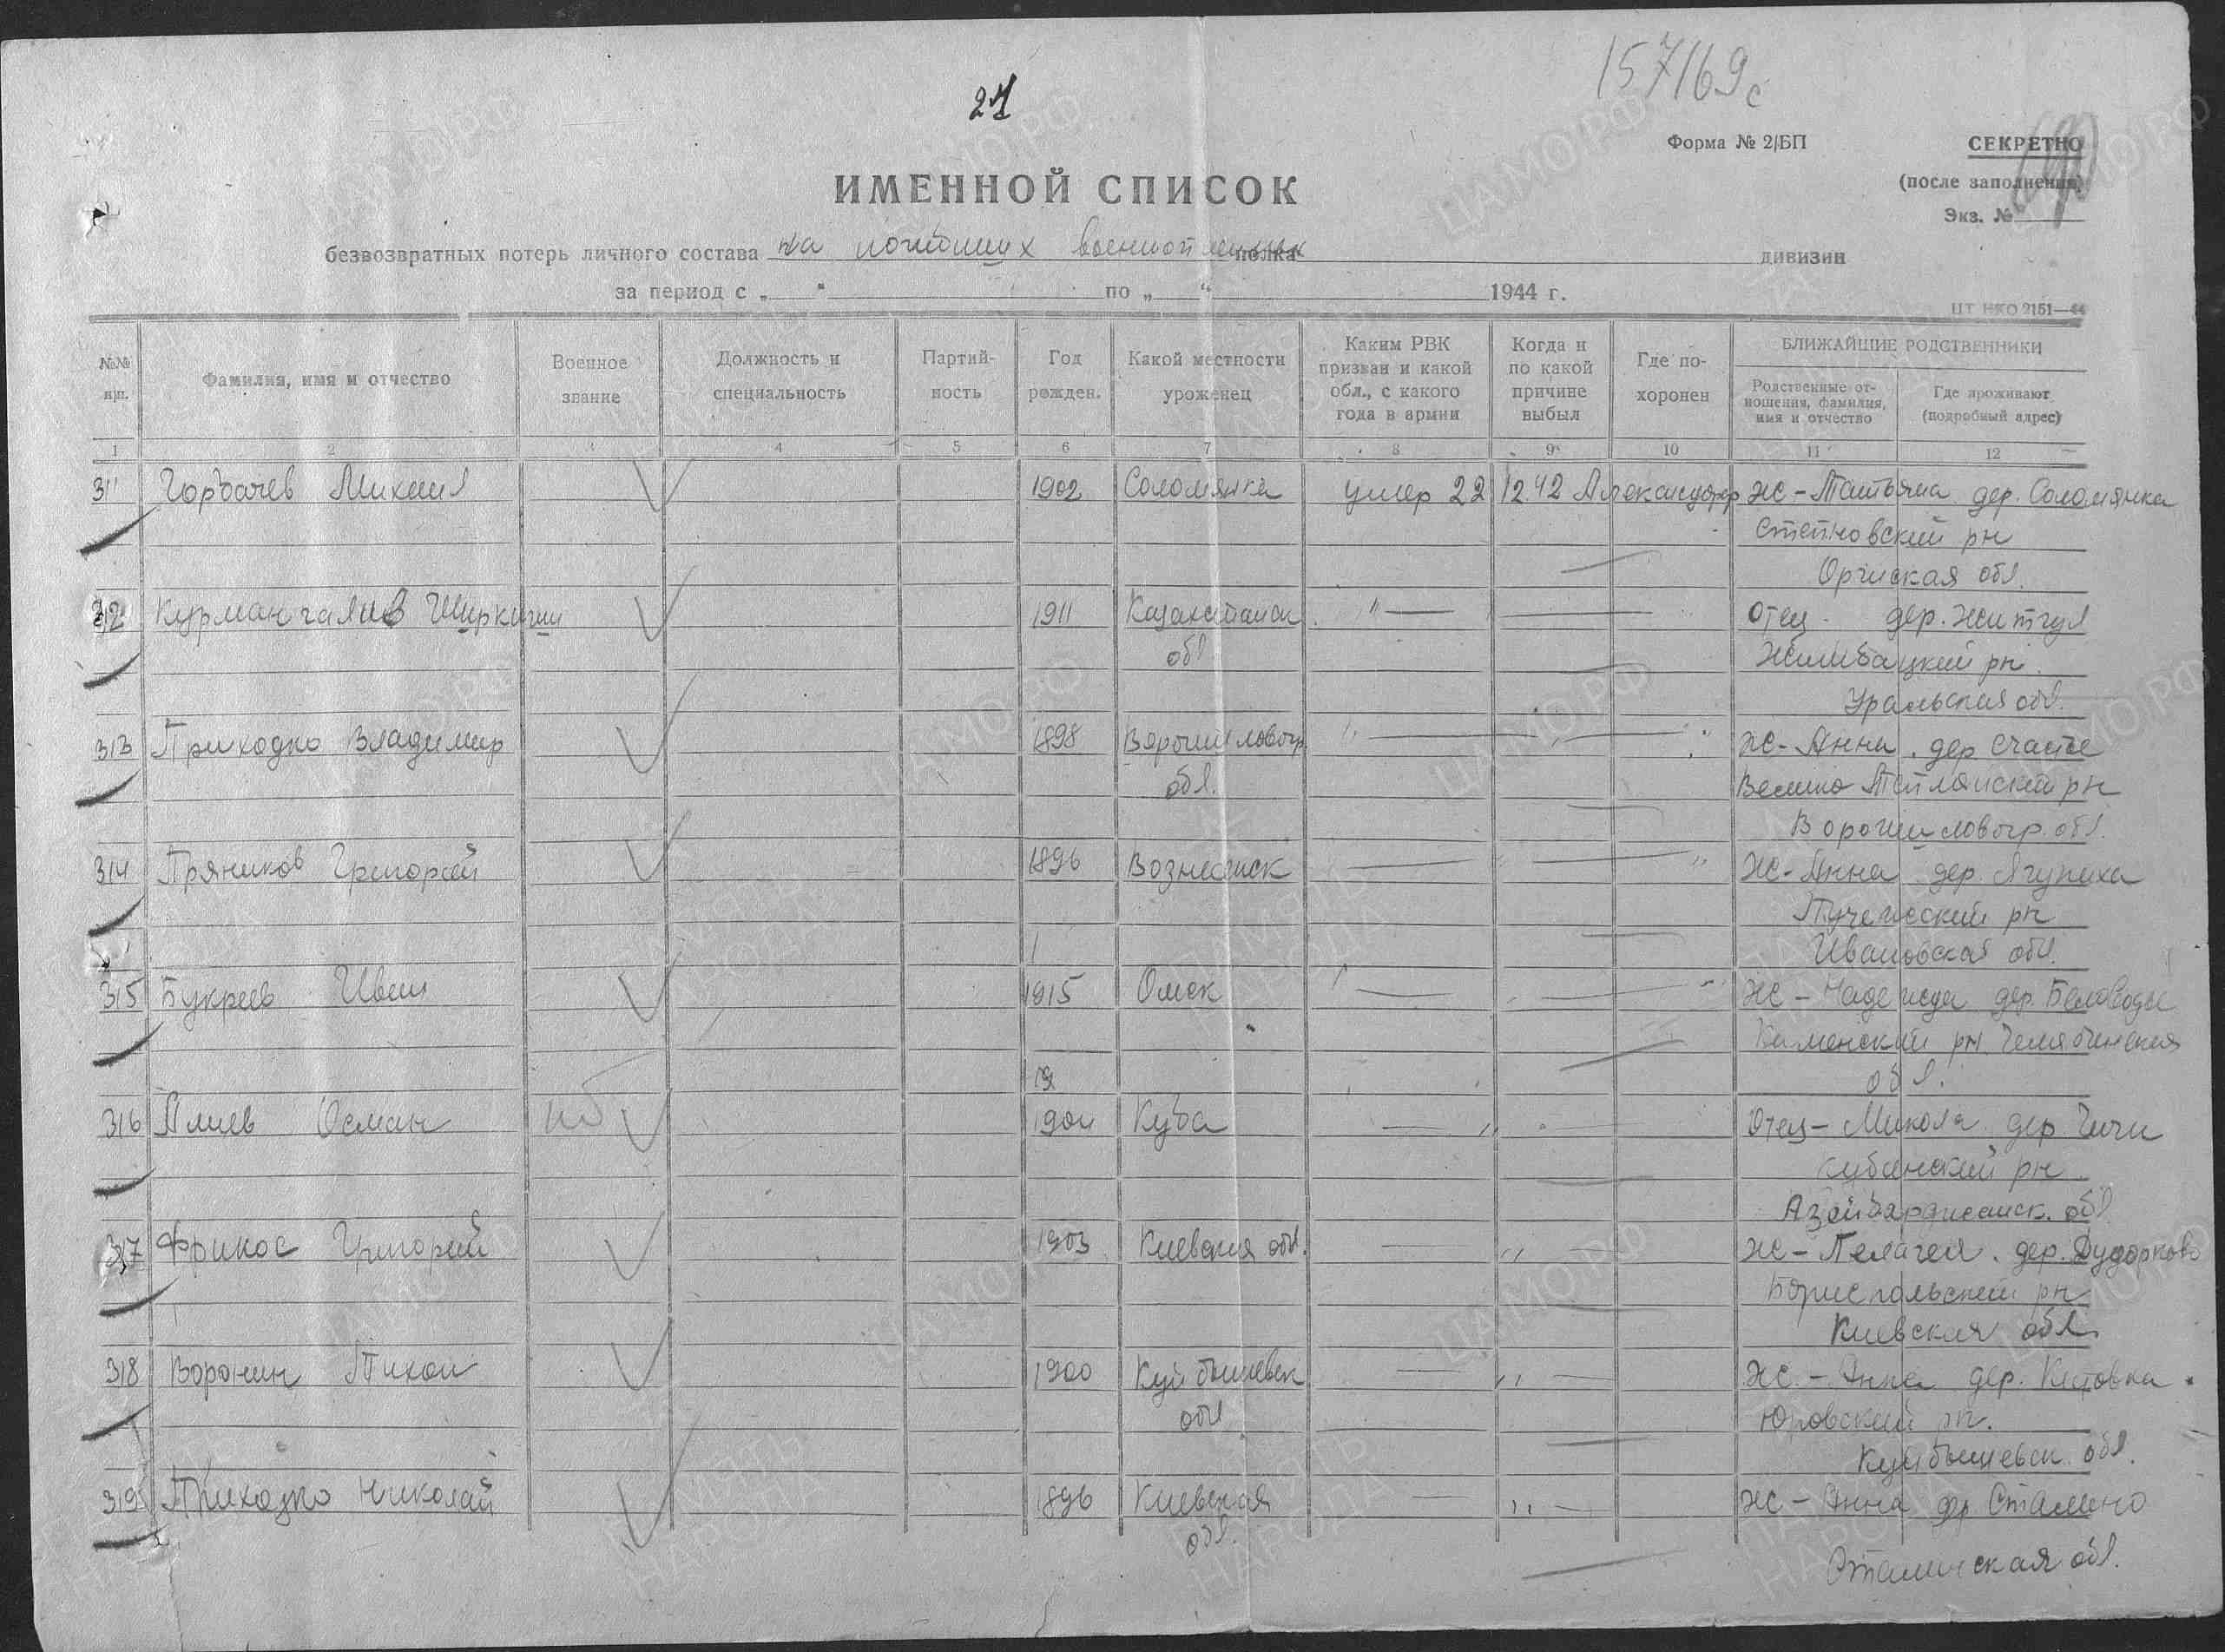 157169с
21
Форма № 2/БП
СЕКРЕТНО
(после заполнения)
Экз. №
ИМЕННОЙ СПИСОК
безвозвратных потерь личного состава на погибших военнопленных полка дивизии
за период с „ “ по „ “ 1944 г.
ЦТ НКО 2151—44
№№ п/п. Фамилия, имя и отчество Военное звание Должность и специальность Партийность Год рожден. Какой местности уроженец Каким РВК призван и какой обл., с какого года в армии Когда и по какой причине выбыл Где похоронен БЛИЖАЙШИЕ РОДСТВЕННИКИ
Родственные отношения, фамилия, имя и отчество Где проживают (подробный адрес)
1 2 3 4 5 6 7 8 9 10 11 12
311 Горбачев Михаил 1902 Соломянка умер 22 12.42 Ж-Татьяна дер. Соломянка
рн
обл.
312 Курмангалиев 1911 Казахстанск „ — Отец дер. Житгул
обл рн.
Уральская обл.
313 Приходко Владимир 1898 Ворошиловогр „ — „ — „ Ж-Анна. дер Счастье
обл. рн
Ворошиловогр. обл.
314 Пряников Григорий 1896 Вознесенск — „ — „ Ж-Анна дер. Ягуниха
Пучежский рн
Ивановская обл.
315 Букреев Иван 1915 Омск „ — „ — „ Ж-Надежда дер. Беловоды
Каменский рн Челябинская
19 обл.
316 Алиев Осман 1904 Куба — „ — Отец-Микола дер Чичи
Кубинский рн
Азейбарджанск. обл
317 Фрикос Григорий 1903 Киевская обл. — „ — Ж-Пелагея. дер. Дударково
Бориспольский рн
Киевская обл.
318 Воронин Тихон 1900 Куйбышевск — „ — Ж.-Анна дер.
обл рн.
Куйбышевск. обл.
319 Приходко Николай 1896 Киевская — „ — Ж-Анна др. Сталино
обл.
Сталинская обл.